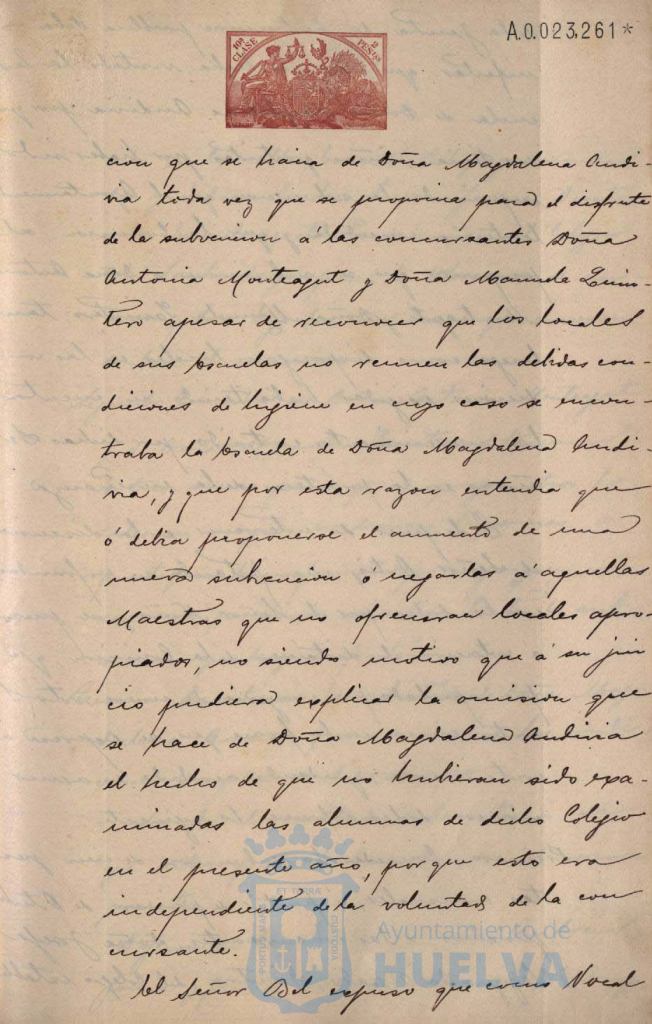 10ª CLASE 2 PESETAS
A.0.023,261*
cion que se hacia de Doña Magdalena Andi-
via toda vez que se proponia para el disfrute
de la subvencion á las concursantes Doña
Antonia Monteagut y Doña Manuela Quin-
tero apesar de reconocer que los locales
de sus Escuelas no reunen las debidas con-
diciones de higiene en cuyo caso se encon-
traba la Escuela de Doña Magdalena Andi-
via, y que por esta razon entendia que
ó debia proponerse el aumento de una
nueva subvencion ó negarlas á aquellas
Maestras que no ofrecieran locales apro-
piados, no siendo motivo que á su jui
cio pudiera explicar la omision que
se hace de Doña Magdalena Andivia
el hecho de que no hubieran sido exa-
minadas las alumnas de dicho Colegio
en el presente año, porque esto era
independiente de la voluntad de la con
cursante.
El Señor Bel expuso que como Vocal
Ayuntamiento de
HUELVA